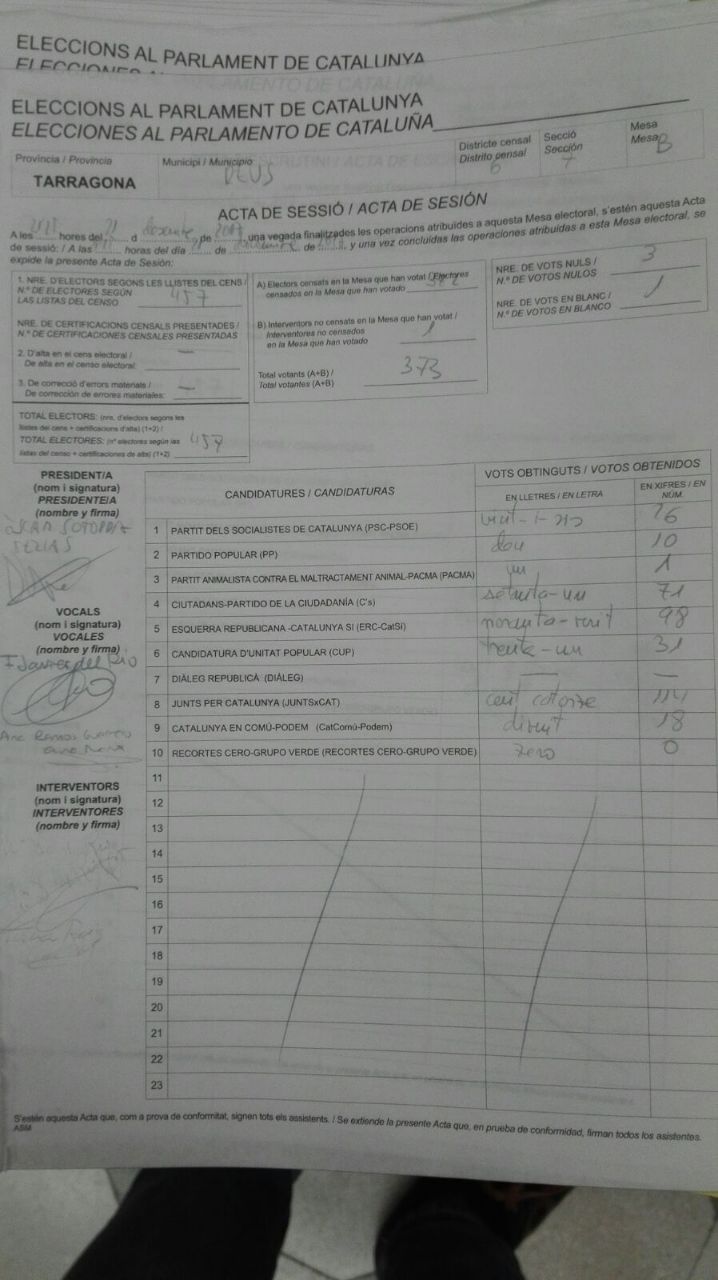 ELECCIONS AL PARLAMENT DE CATALUNYA
ELECCIONS AL PARLAMENT DE CATALUNYA
ELECCIONES AL PARLAMENTO DE CATALUÑA
Província / Provincia
TARRAGONA
Municipi / Municipio
REUS
Districte censal
Distrito censal
6
Secció
Sección
7
Mesa
Mesa
B
ACTA DE SESSIÓ / ACTA DE SESIÓN
A les hores del 21 d desembre de 2017, una vegada finalitzades les operacions atribuïdes a aquesta Mesa electoral, s'estén aquesta Acta
de sessió: / A las horas del día de de y una vez concluidas las operaciones atribuidas a esta Mesa electoral, se
expide la presente Acta de Sesión:
1. NRE. D'ELECTORS SEGONS LES LLISTES DEL CENS /
N.º DE ELECTORES SEGÚN
LAS LISTAS DEL CENSO
457
NRE. DE CERTIFICACIONS CENSALS PRESENTADES /
N.º DE CERTIFICACIONES CENSALES PRESENTADAS
2. D'alta en el cens electoral /
De alta en el censo electoral: —
3. De correcció d'errors materials /
De corrección de errores materiales: —
TOTAL ELECTORS: (nre. d'electors segons les
llistes del cens + certificacions d'alta) (1+2) /
TOTAL ELECTORES: (nº electores según las
listas del censo + certificaciones de alta) (1+2)
457
A) Electors censats en la Mesa que han votat / Electores
censados en la Mesa que han votado 372
B) Interventors no censats en la Mesa que han votat /
Interventores no censados
en la Mesa que han votado
1
Total votants (A+B) /
Total votantes (A+B)
373
NRE. DE VOTS NULS /
N.º DE VOTOS NULOS
3
NRE. DE VOTS EN BLANC /
N.º DE VOTOS EN BLANCO
1
PRESIDENT/A
(nom i signatura)
PRESIDENTE/A
(nombre y firma)
VOCALS
(nom i signatura)
VOCALES
(nombre y firma)
F Javier del Río
Ana Ramos
INTERVENTORS
(nom i signatura)
INTERVENTORES
(nombre y firma)
CANDIDATURES / CANDIDATURAS
VOTS OBTINGUTS / VOTOS OBTENIDOS
EN LLETRES / EN LETRA
EN XIFRES / EN NÚM.
1 PARTIT DELS SOCIALISTES DE CATALUNYA (PSC-PSOE) vint-i-sis 26
2 PARTIDO POPULAR (PP) deu 10
3 PARTIT ANIMALISTA CONTRA EL MALTRACTAMENT ANIMAL-PACMA (PACMA) un 1
4 CIUTADANS-PARTIDO DE LA CIUDADANÍA (C's) setanta-un 71
5 ESQUERRA REPUBLICANA -CATALUNYA SÍ (ERC-CatSí) noranta-vuit 98
6 CANDIDATURA D'UNITAT POPULAR (CUP) trenta-un 31
7 DIÀLEG REPUBLICÀ (DIÀLEG) — —
8 JUNTS PER CATALUNYA (JUNTSxCAT) cent catorze 114
9 CATALUNYA EN COMÚ-PODEM (CatComú-Podem) divuit 18
10 RECORTES CERO-GRUPO VERDE (RECORTES CERO-GRUPO VERDE) zero 0
11
12
13
14
15
16
17
18
19
20
21
22
23
S'estén aquesta Acta que, com a prova de conformitat, signen tots els assistents. / Se extiende la presente Acta que, en prueba de conformidad, firman todos los asistentes.